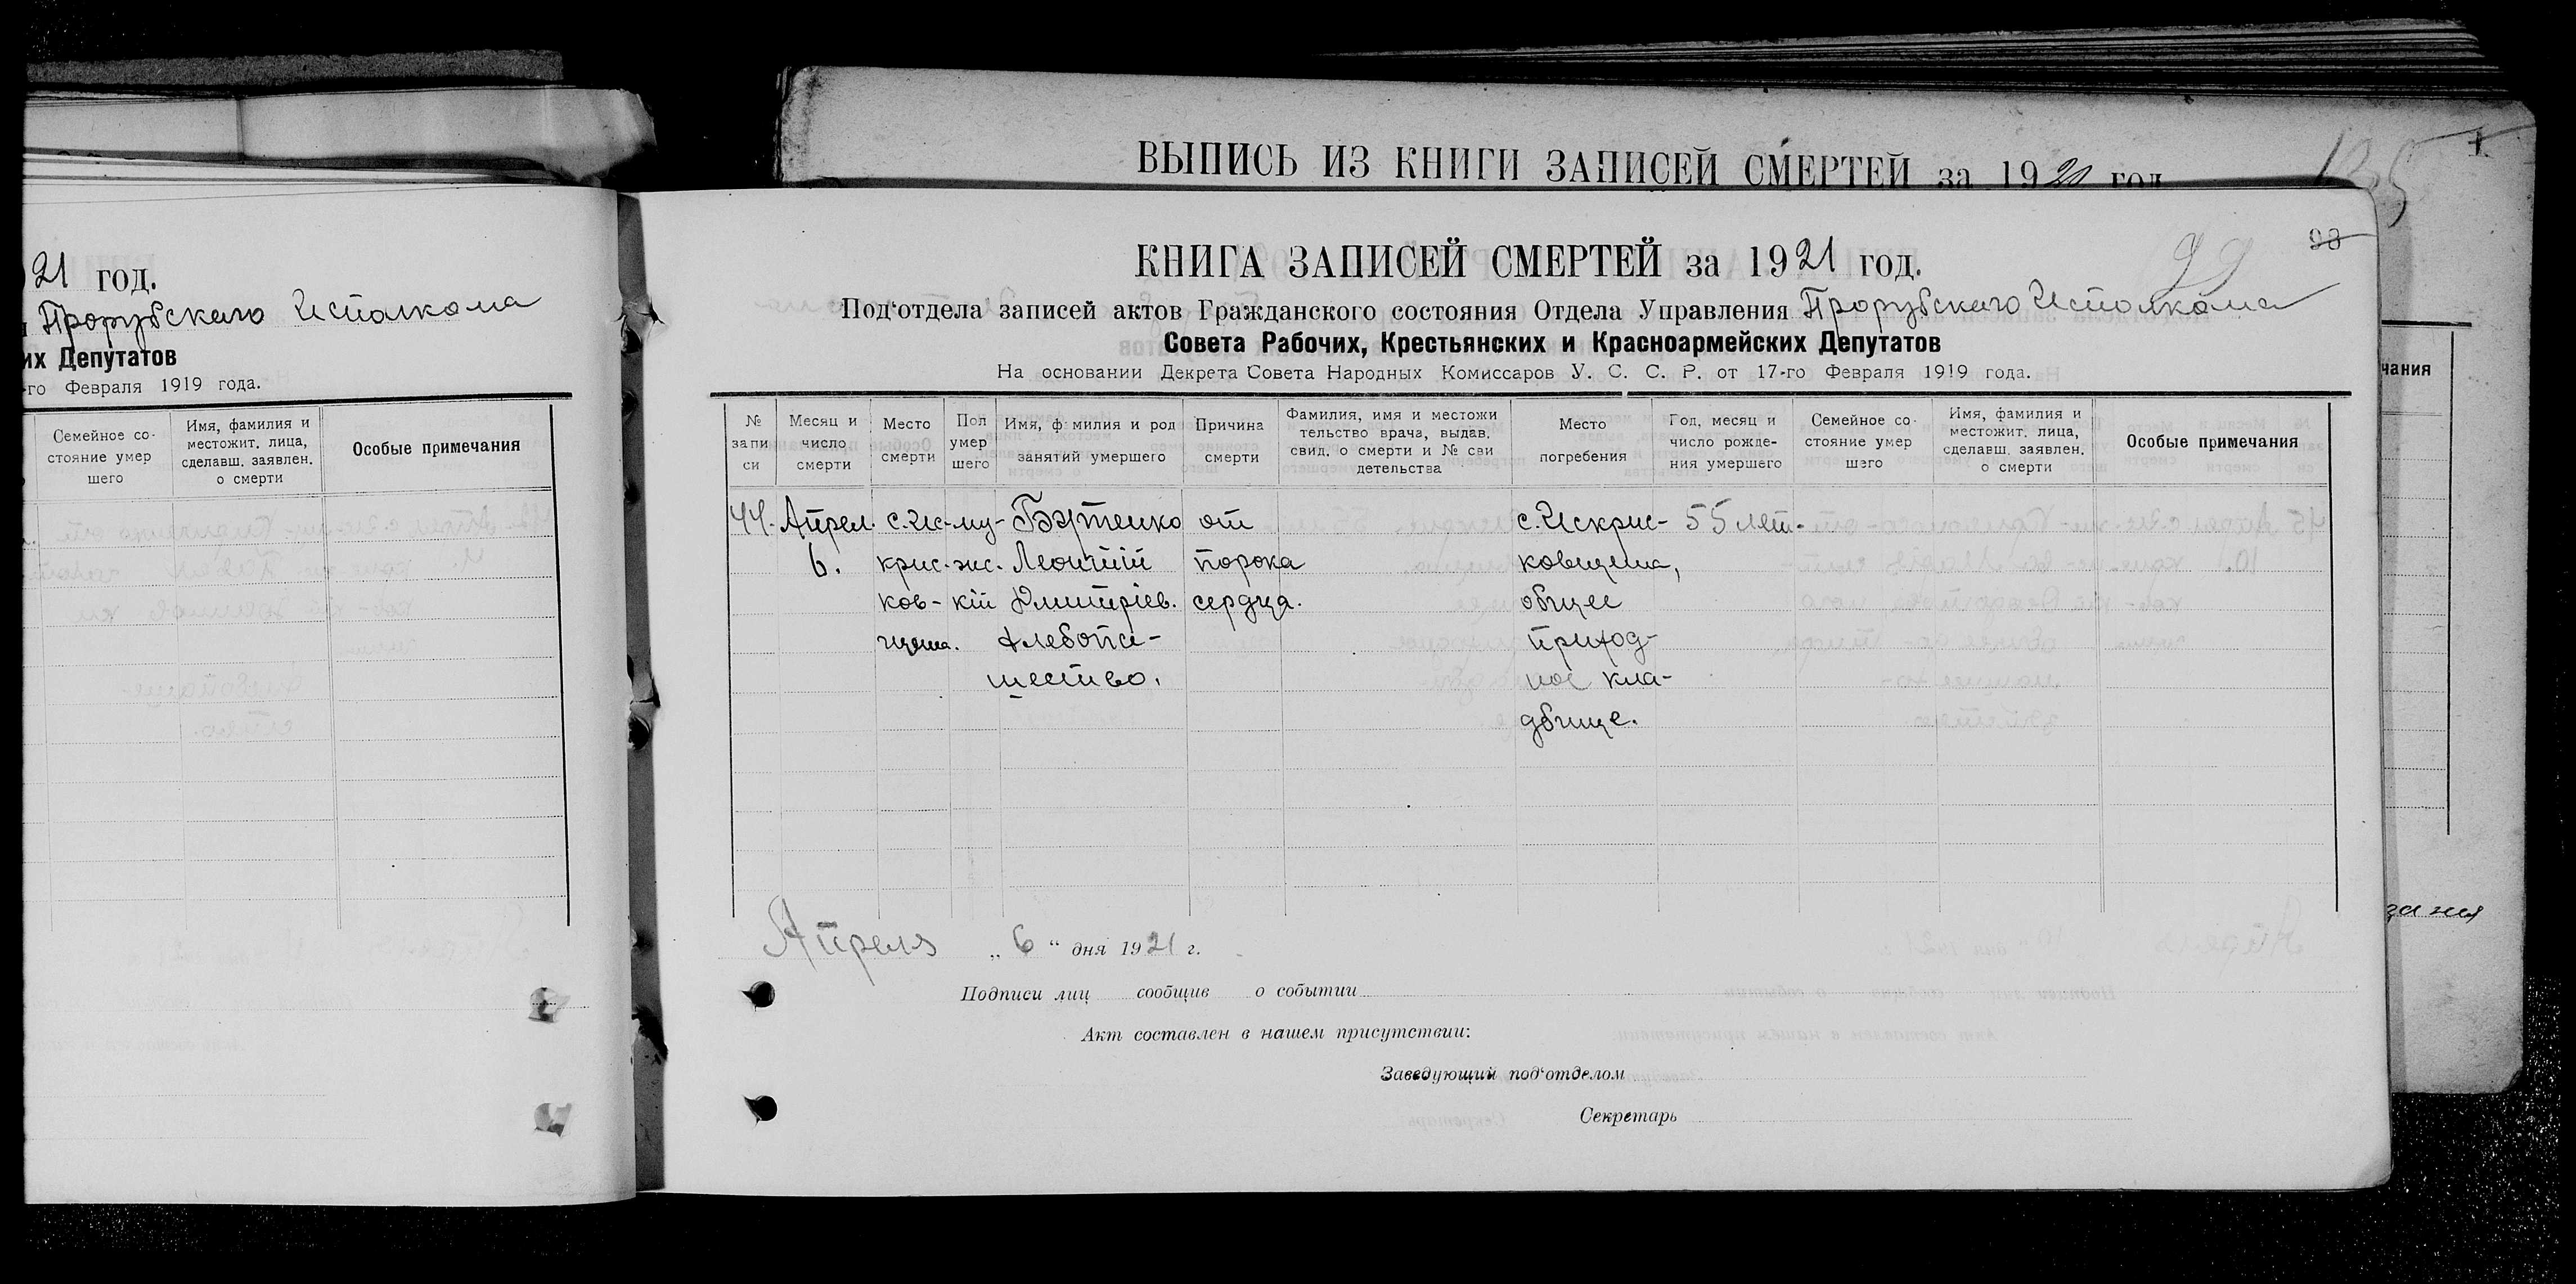 ВЫПИСЬ ИЗ КНИГИ ЗАПИСЕЙ СМЕРТЕЙ за 1920 год
135
1
21 год.
Прорубскаго Исполкома
их Депутатов
-го Февраля 1919 года.
Семейное со-
стояние умер
шего
Имя, фамилия и
местожит. лица,
сделавш. заявлен.
о смерти
Особые примечания
чания
98
99
КНИГА ЗАПИСЕЙ СМЕРТЕЙ за 1921 год.
Под‘отдела записей актов Гражданского состояния Отдела Управления Прорубскаго Исполкома
Совета Рабочих, Крестьянских и Красноармейских Депутатов
На основании Декрета Совета Народных Комиссаров У. С. С. Р. от 17-го Февраля 1919 года.
№
запи
си
Месяц и
число
смерти
Место
смерти
Пол
умер
шего
Имя, ф милия и род
занятий умершего
Причина
смерти
Фамилия, имя и местожи
тельство врача, выдав.
свид. о смерти и № сви
детельства
Место
погребения
Год, месяц и
число рожде-
ния умершего
Семейное со-
стояние умер
шего
Имя, фамилия и
местожит. лица,
сделавш. заявлен.
о смерти
Особые примечания
44.
Апрел.
6.
с. Ис-
крис-
ков-
щина.
му-
жс-
кій
Бутенко
Леонтій
Дмитріев.
хлебопа-
шество.
от
порока
сердца.
с. Искрис-
ковщина,
общее
приход-
ное кла-
дбище.
55 лет.
Апреля „ 6 “ дня 1921 г.
Подписи лиц сообщив о событии
Акт составлен в нашем присутствии:
Заведующий под‘отделом
Секретарь